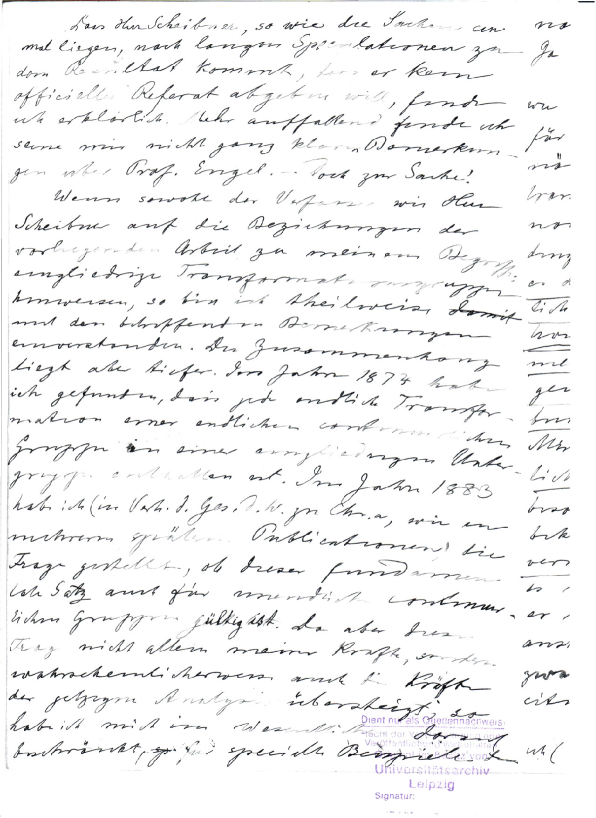 Dass Herr Scheibner, so wie die Sachen ein
mal liegen, nach langen Speculationen zu
dem Resultat kommt, dass er kein
officielles Referat abgeben will, finde
ich erklärlich. Mehr auffallend finde ich
seine mir nicht ganz klaren Bemerkun-
gen über Prof. Engel. – Doch zur Sache!
Wenn sowohl der Verfasser wie Herr
Scheibner auf die Beziehungen der
vorliegenden Arbeit zu meinem Begriffe:
eingliedrige Transformationsgruppe
hinweisen, so bin ich theilweise damit
mit den betreffenden Bemerkungen
einverstanden. Der Zusammenhang
liegt aber tiefer. Im Jahre 1874 habe
ich gefunden, dass jede endliche Transfor-
mation einer endlichen continuirlichen
Gruppe in einer eingliedrigen Unter-
gruppe enthalten ist. Im Jahre 1883
hab ich (in Verh. d. Ges. d. W. zu Chr.a, wie in
mehreren späteren Publicationen) die
Frage gestellt, ob dieser fundamen
tale Satz auch für unendliche continuir-
lichen Gruppen gültig ist. Da aber diese
Frage nicht allein meine Kräfte, sondern
wahrscheinlicherweise auch die Kräfte
der jetzigen Analysis übersteigt, so
hab ich mich im Wesentlichen darauf
beschränkt, specielle Beispiele
für
war
er
lich
Dient nur als Quellennachweis
Universitätsarchiv
Leipzig
Signatur: